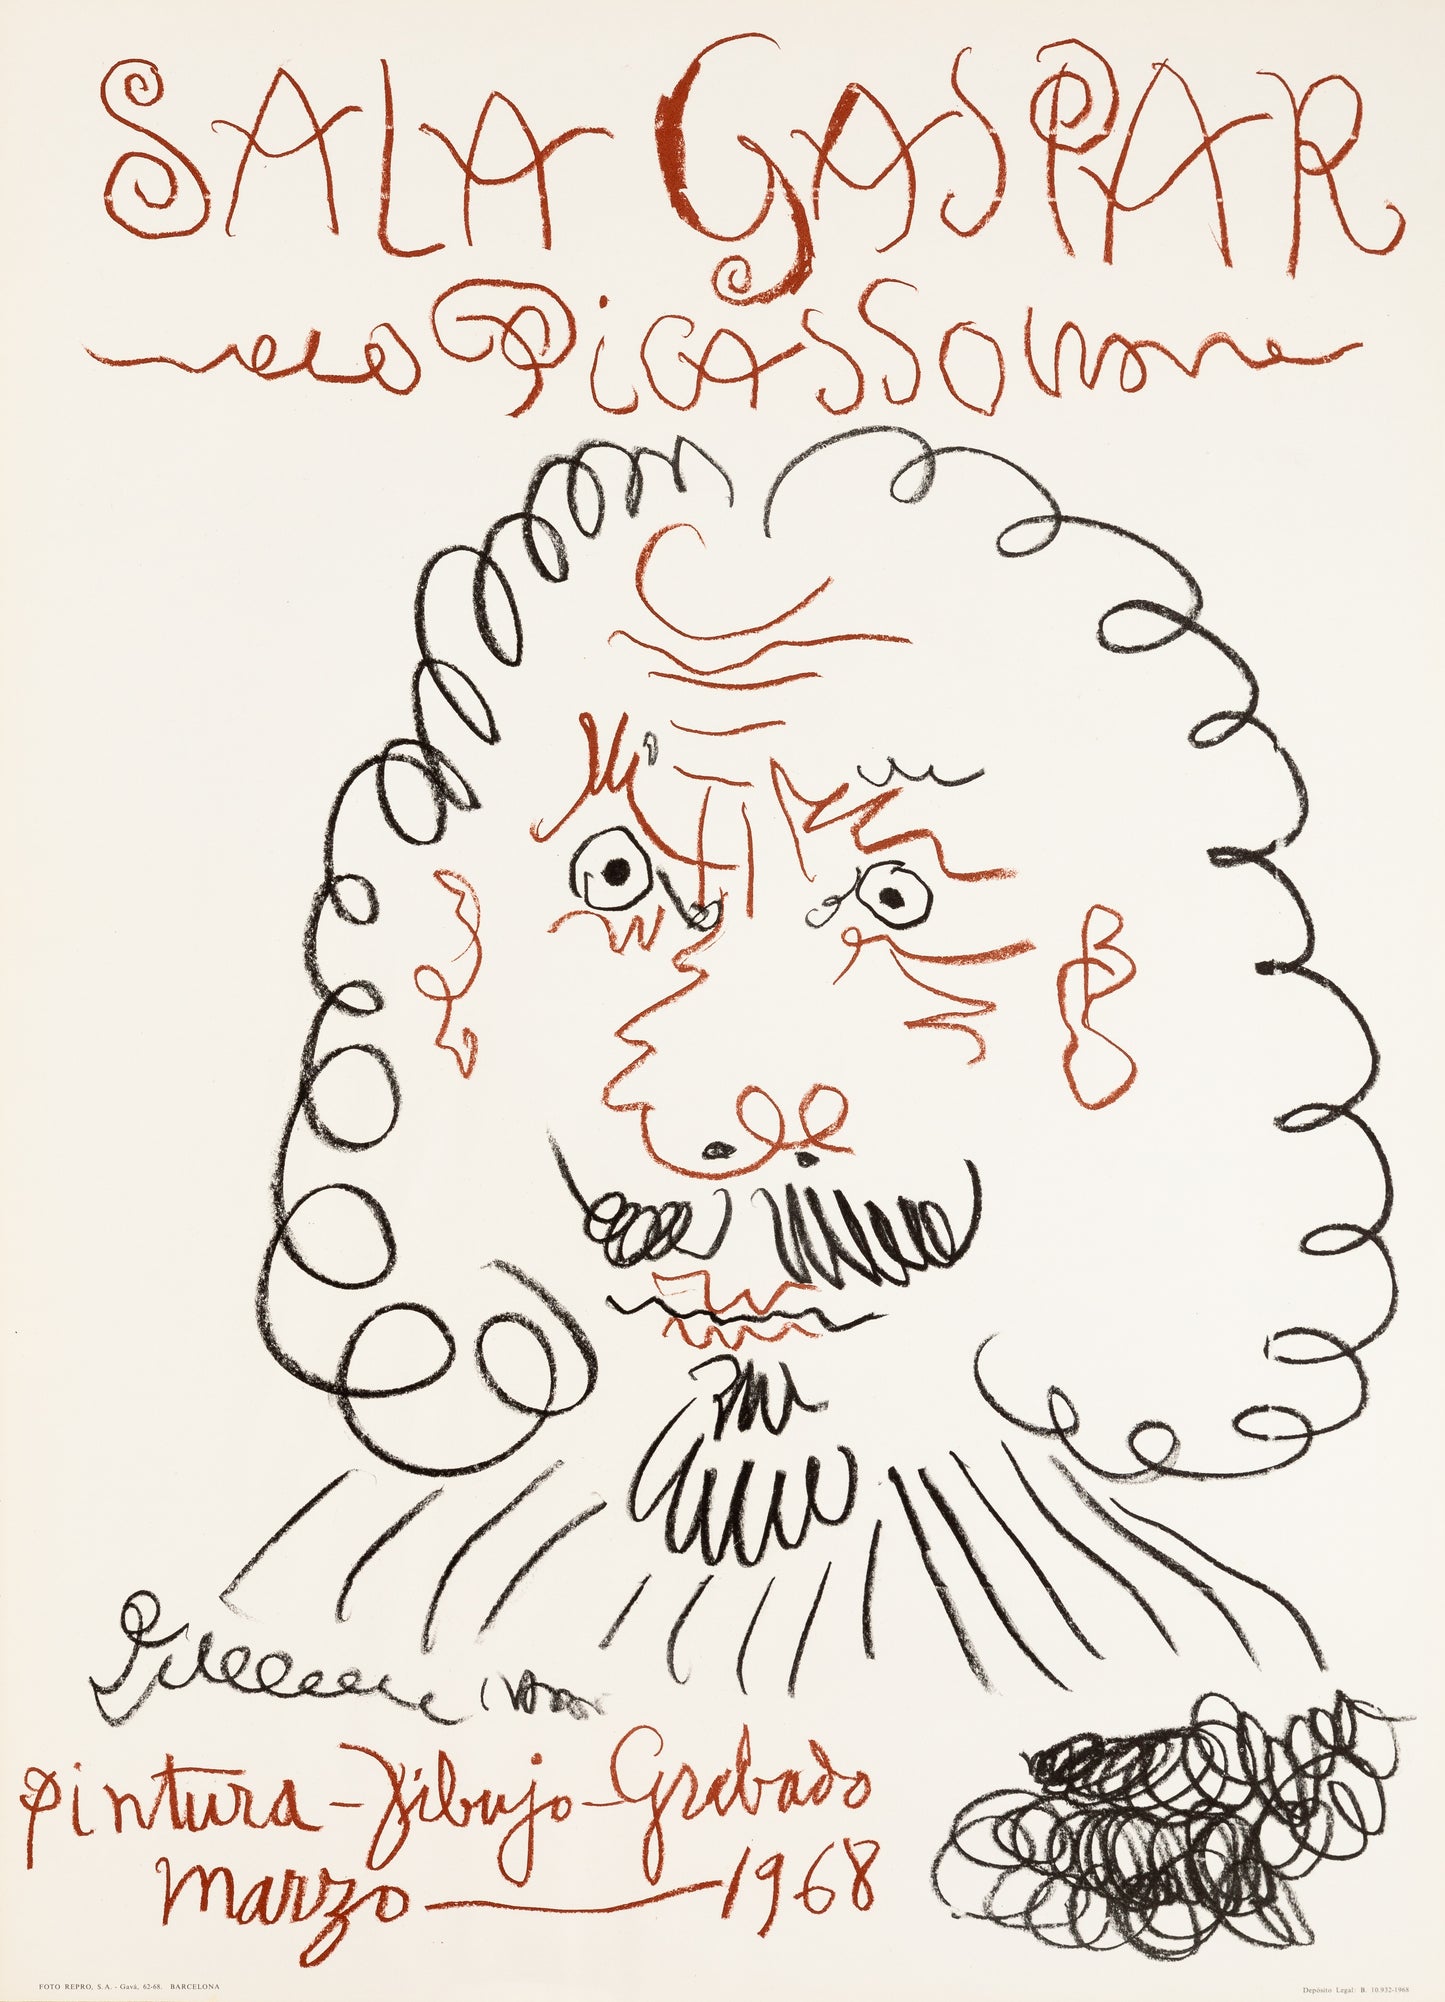 SALA GASPAR
PicASSO
pintura - Dibujo - Grabado
Marzo — 1968
FOTO REPRO, S.A. - Gavá, 62-68. BARCELONA
Depósito Legal: B. 10.932-1968